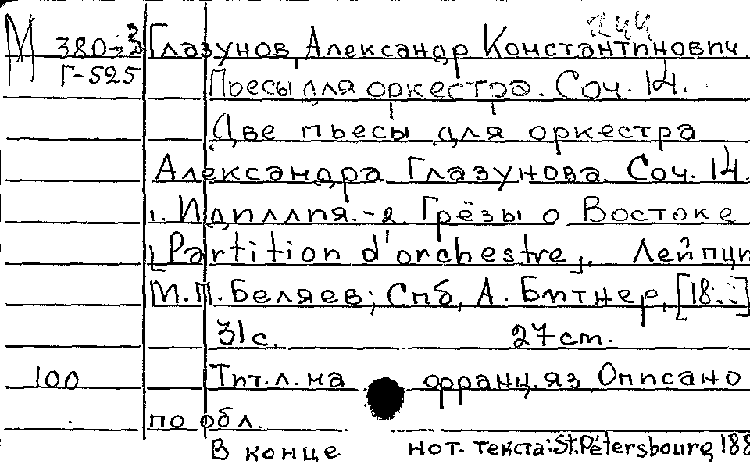 244
М 380-3 Глазунов, Александр Константинович
Г-525 Пьесы для оркестра. Соч. 14.
Две пьесы для оркестра
Александра Глазунова. Соч. 14.
1. Идиллия.-2. Грёзы о Востоке
[Partition d'orchestre]. Лейпци
М.П. Беляев; Спб, А. Битнер, [18..]
31 с. 27 cm.
100 Тит.л. на франц. яз Описано
по обл.
В конце нот. текста: St. Pétersbourg 188